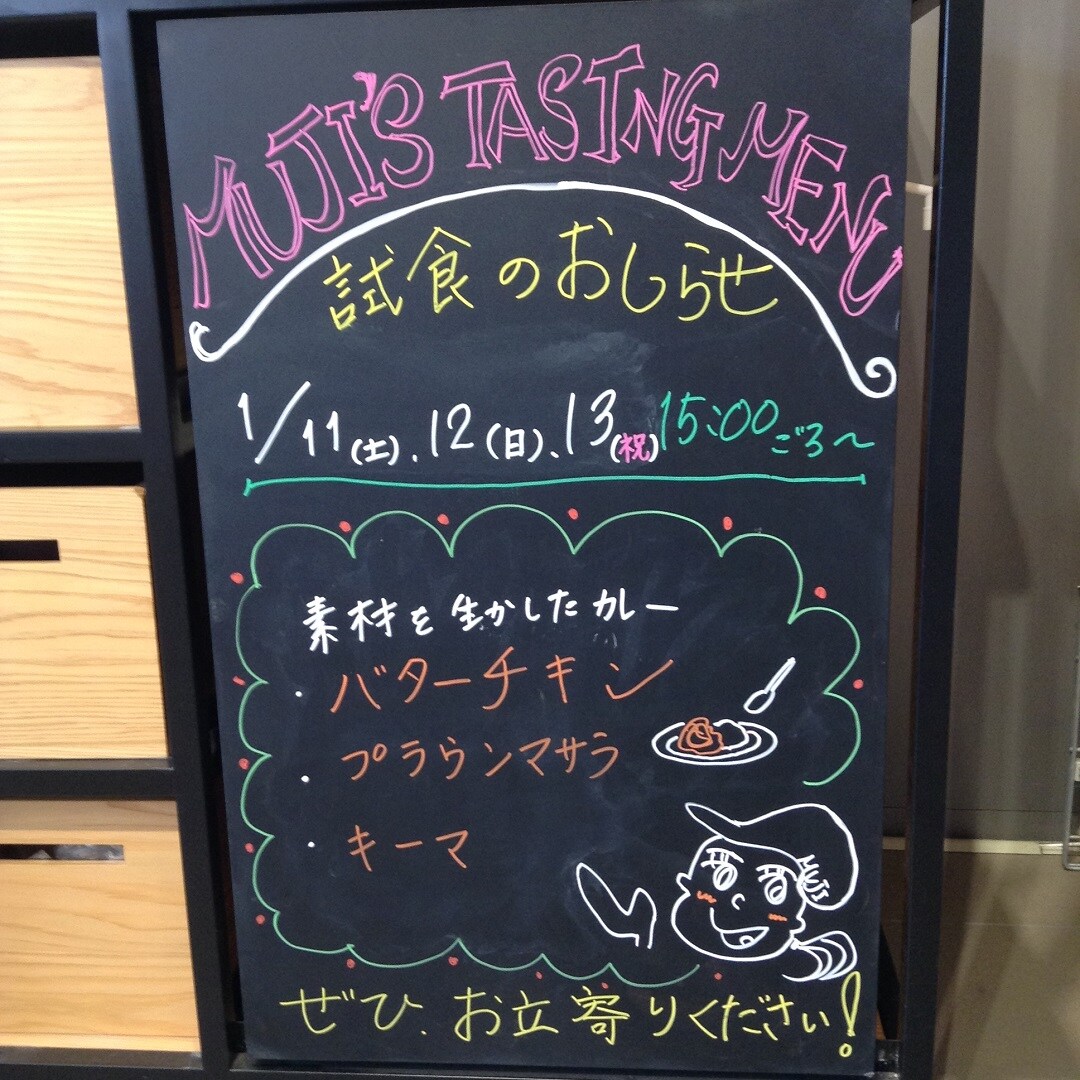 MUJI'S TASTNG MENU
試食のおしらせ
1/11(土)、12(日)、13(祝)15:00ごろ〜
素材を生かしたカレー
・バターチキン
・プラウンマサラ
・キーマ
MUJI
ぜひ、お立寄りください!